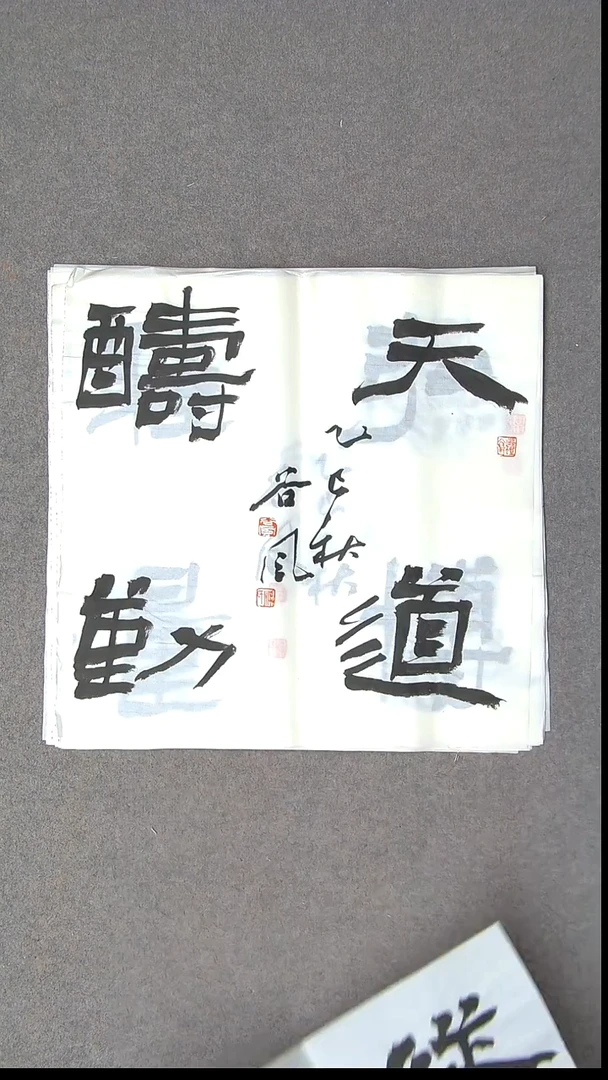 天道
醻勤
乙巳秋
谷風